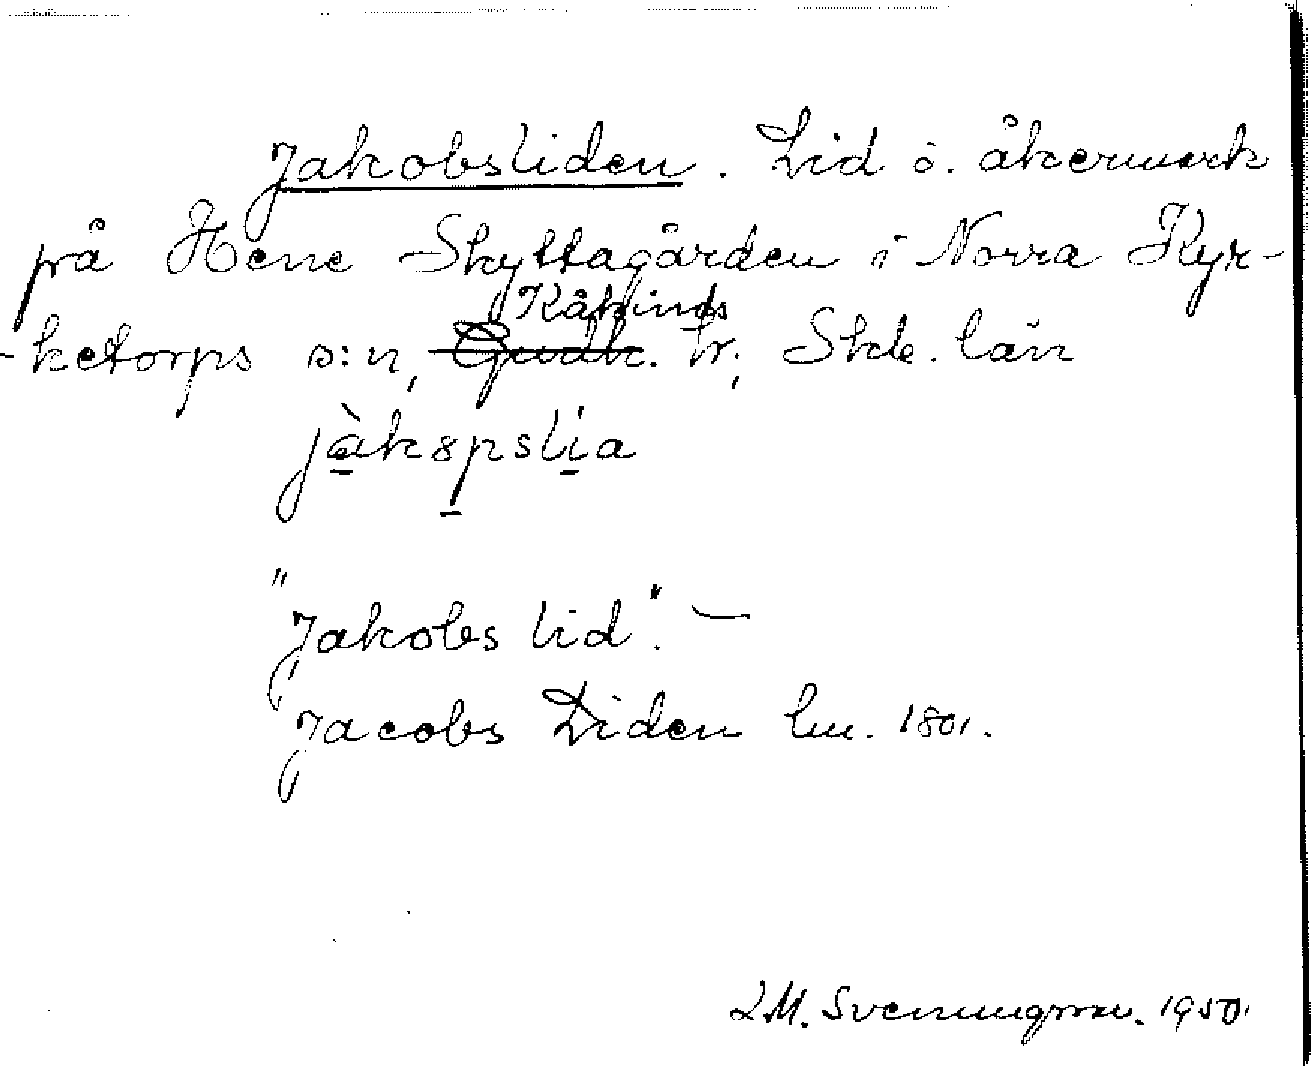 Jakobsliden. Lid o. åkermark
på Hene Skyttagården i Norra Kyr-
-ketorps s:n, Gudh. Kåkinds hr, Skbg. län
jàkspslia
"Jakobs lid". —
Jacobs Liden lm. 1801.
L.M. Svenungsson. 1950.